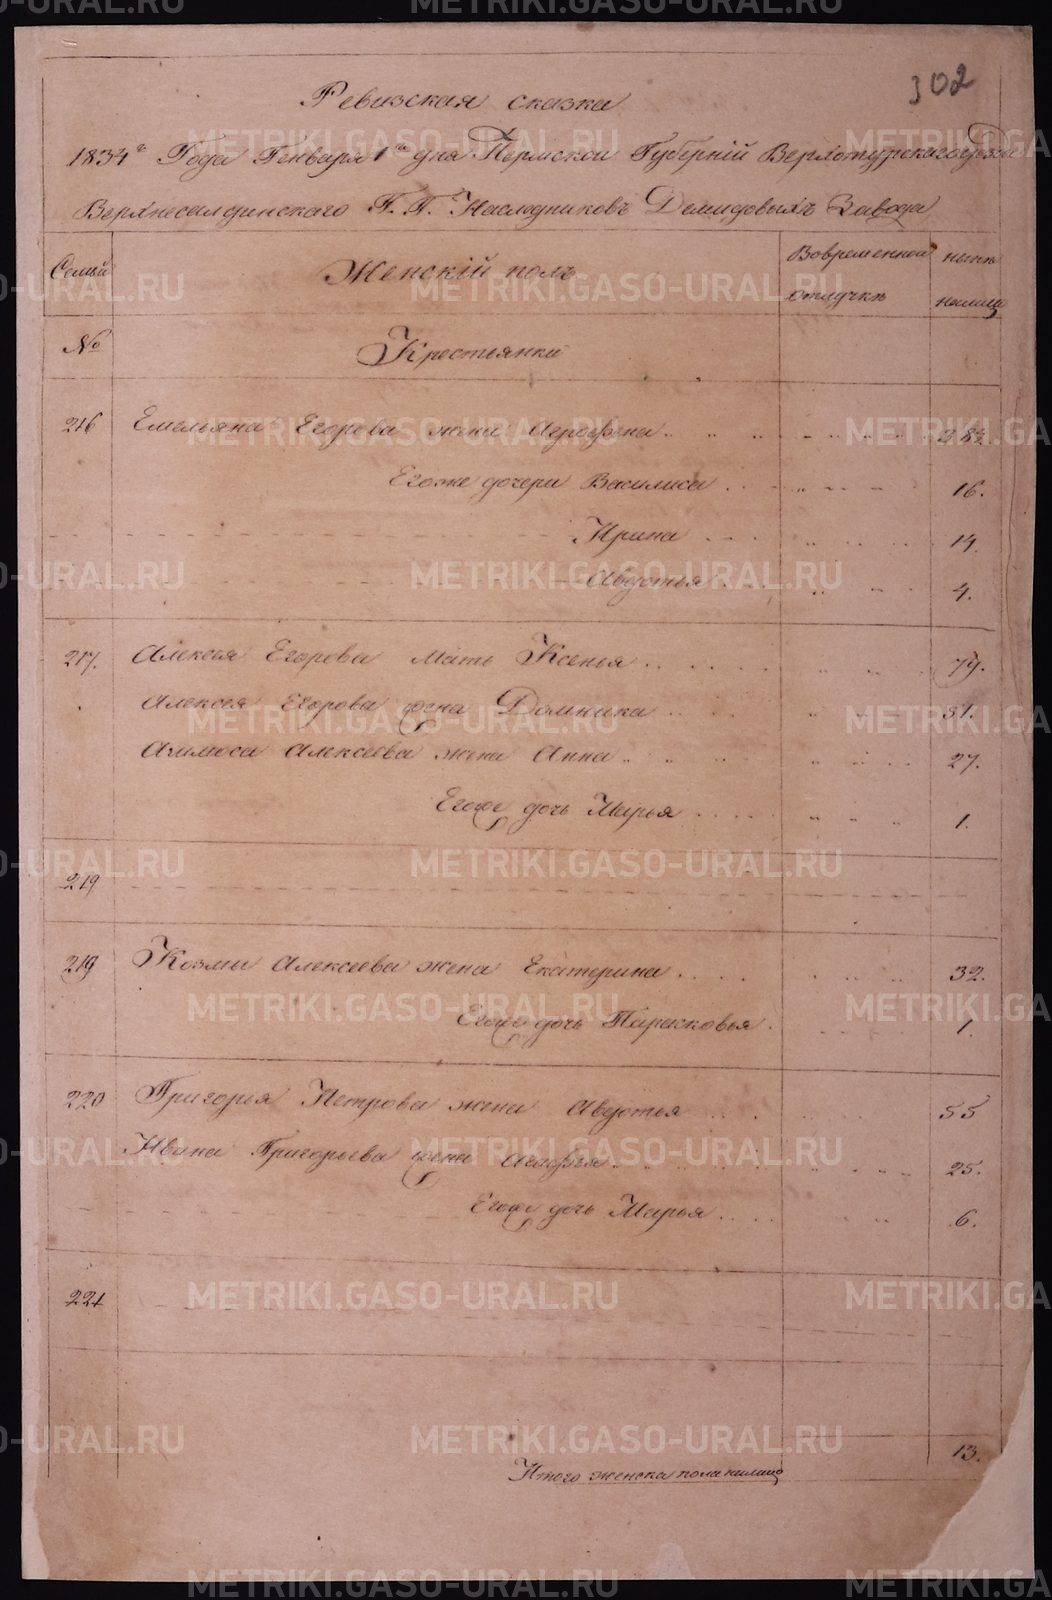 302
Ревизская сказка
1834го Года Генваря 1го дня Пермской Губерніи Верхотурскаго уезда
Верхнесалдинскаго Г.Г. Наследниковъ Демидовыхъ Завода
Семьи
Женскій полъ
Вовременной отлучке
ныне налицо
№
Крестьянки
216 Емельяна Егорова жена Аграфена 38.
Егоже дочери Василиса 16.
Ирина 14.
Авдотья 4.
217. Алексея Егорова мать Ксенья 79.
Алексея Егорова жена Домника 51.
Алексеева жена Анна 27.
Егоже дочь Марья 1.
219
219 Козмы Алексеева жена Екатерина 32.
Егоже дочь Парасковья 1.
220 Григорья Петрова жена Авдотья 55
Ивана Григорьева жена Агафья 25.
Егоже дочь Марья 6.
221
13.
Итого женска пола налицо
METRIKI.GASO-URAL.RU